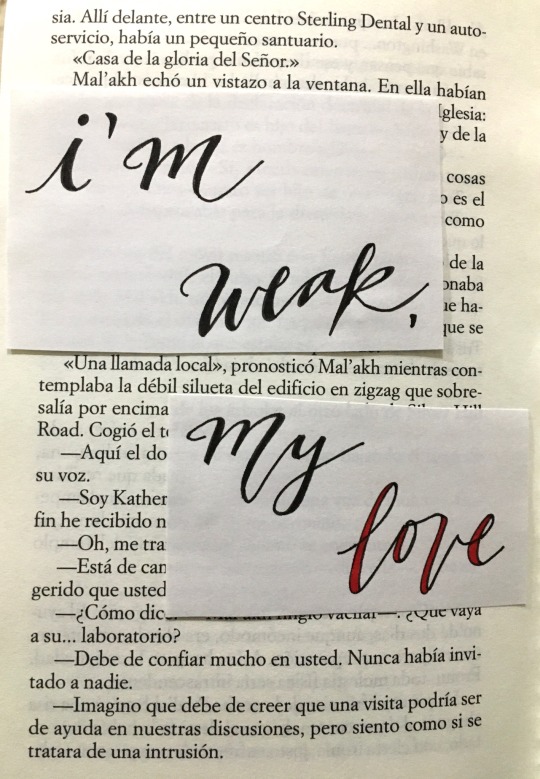 sia. Allí delante, entre un centro Sterling Dental y un auto-
servicio, había un pequeño santuario.
«Casa de la gloria del Señor.»
Mal'akh echó un vistazo a la ventana. En ella habían
Iglesia:
y de la
i'm
cosas
o es el
como
de la
weak,
que se
«Una llamada local», pronosticó Mal'akh mientras con-
templaba la débil silueta del edificio en zigzag que sobre-
salía por encima
Road. Cogió el
my
—Aquí el
su voz.
—Soy
fin he recibido
love
—Oh, me
—Está de
gerido que usted
—¿Cómo ¿Que vaya
a su... laboratorio?
—Debe de confiar mucho en usted. Nunca había invi-
tado a nadie.
—Imagino que debe de creer que una visita podría ser
de ayuda en nuestras discusiones, pero siento como si se
tratara de una intrusión.